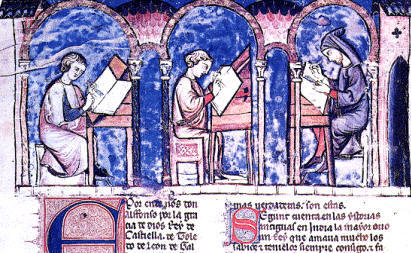 Por ende nos don
Alfonso por la gra
cia de dios Rey de
Castiella. de Tole
do de Leon de Gal
mas uerdaderas. son estas.
Segunt cuenta en las ystorias
antiguas en India la mayor ouo
un Rey que amaua mucho los
sabios e tenielos siempre consigo. e fa